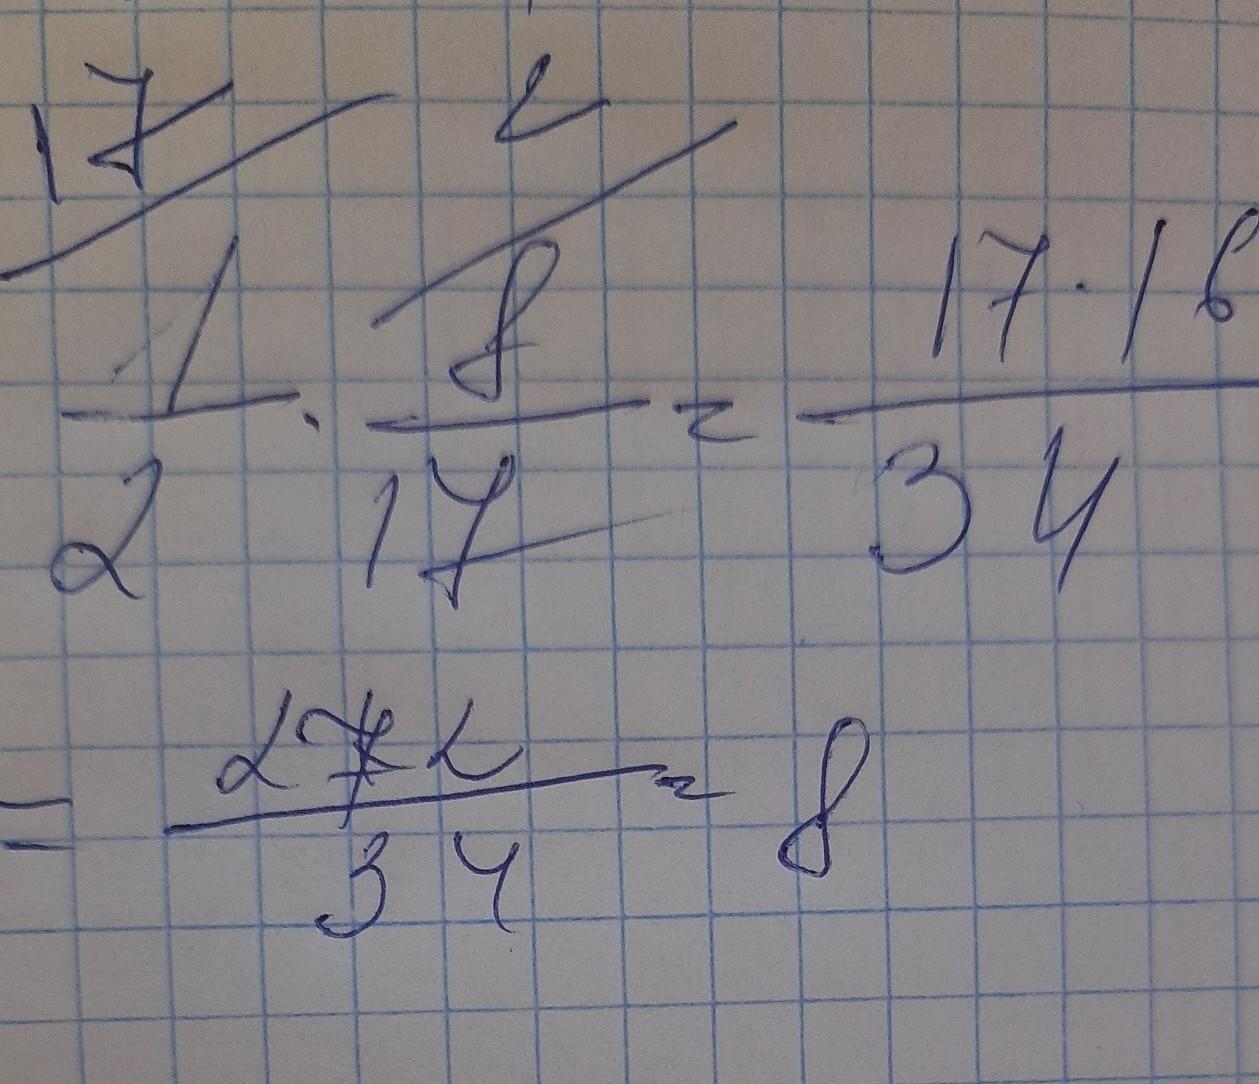 17 2
1/2 · 8/17 = 17·16/34
= 272/34 = 8